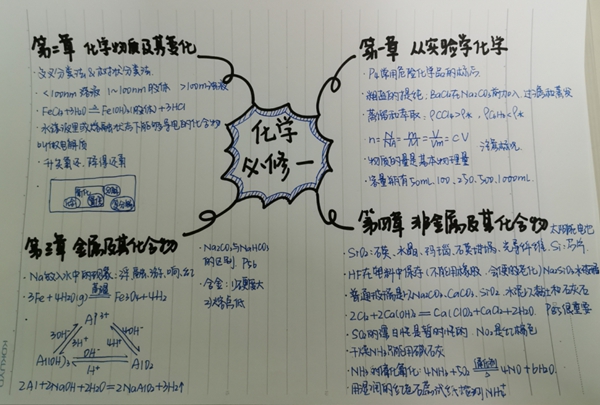 第二章 化学物质及其变化
交叉分类法&树状分类法.
<100nm 溶液 1~100nm胶体 >100nm浊液
FeCl3+3H2O ≜ Fe(OH)3(胶体)+3HCl
水溶液里或熔融状态下能够导电的化合物
叫做电解质
升失氧还,降得还
氧化
分解
化合
置换
复分解
化学
必修一
第一章 从实验学化学
P4 常用危险化学品的标志
粗盐的提纯,BaCl2在Na2CO3前加入,过滤和蒸发
蒸馏和萃取. ρCCl4>ρ水. ρC6H6<ρ水
n=N/NA=m/M=V/Vm=cV
物质的量是基本物理量
容量瓶有50mL.100.250.500.1000mL.
第三章 金属及其化合物
Na放入水中的现象:浮,熔,游,响,红
3Fe+4H2O(g) 高温 Fe3O4+4H2
Al³⁺
3OH⁻
3H⁺
4OH⁻
4H⁺
OH⁻
Al(OH)3
AlO2
H⁺
2Al+2NaOH+2H2O=2NaAlO2+3H2↑
Na2CO3与NaHCO3
的区别 P56
合金:1)硬度大
2)熔点低
第四章 非金属及其化合物
太阳能电池
SiO2:石英,水晶,玛瑙,石英坩埚,光导纤维 Si:芯片
HF在塑料中保存(不能用玻璃
普通玻璃是以Na2CO3.CaCO3.SiO2
2Cl2+2Ca(OH)2=Ca(ClO)2+CaCl2+2H2O.
SO2的漂白性是暂时性的. NO2是红棕色
干燥NH3只能用碱石灰
NH3的催化氧化:4NH3+5O2 催化剂 4NO+6H2O.
用湿润的红色石蕊试纸检测NH4⁺